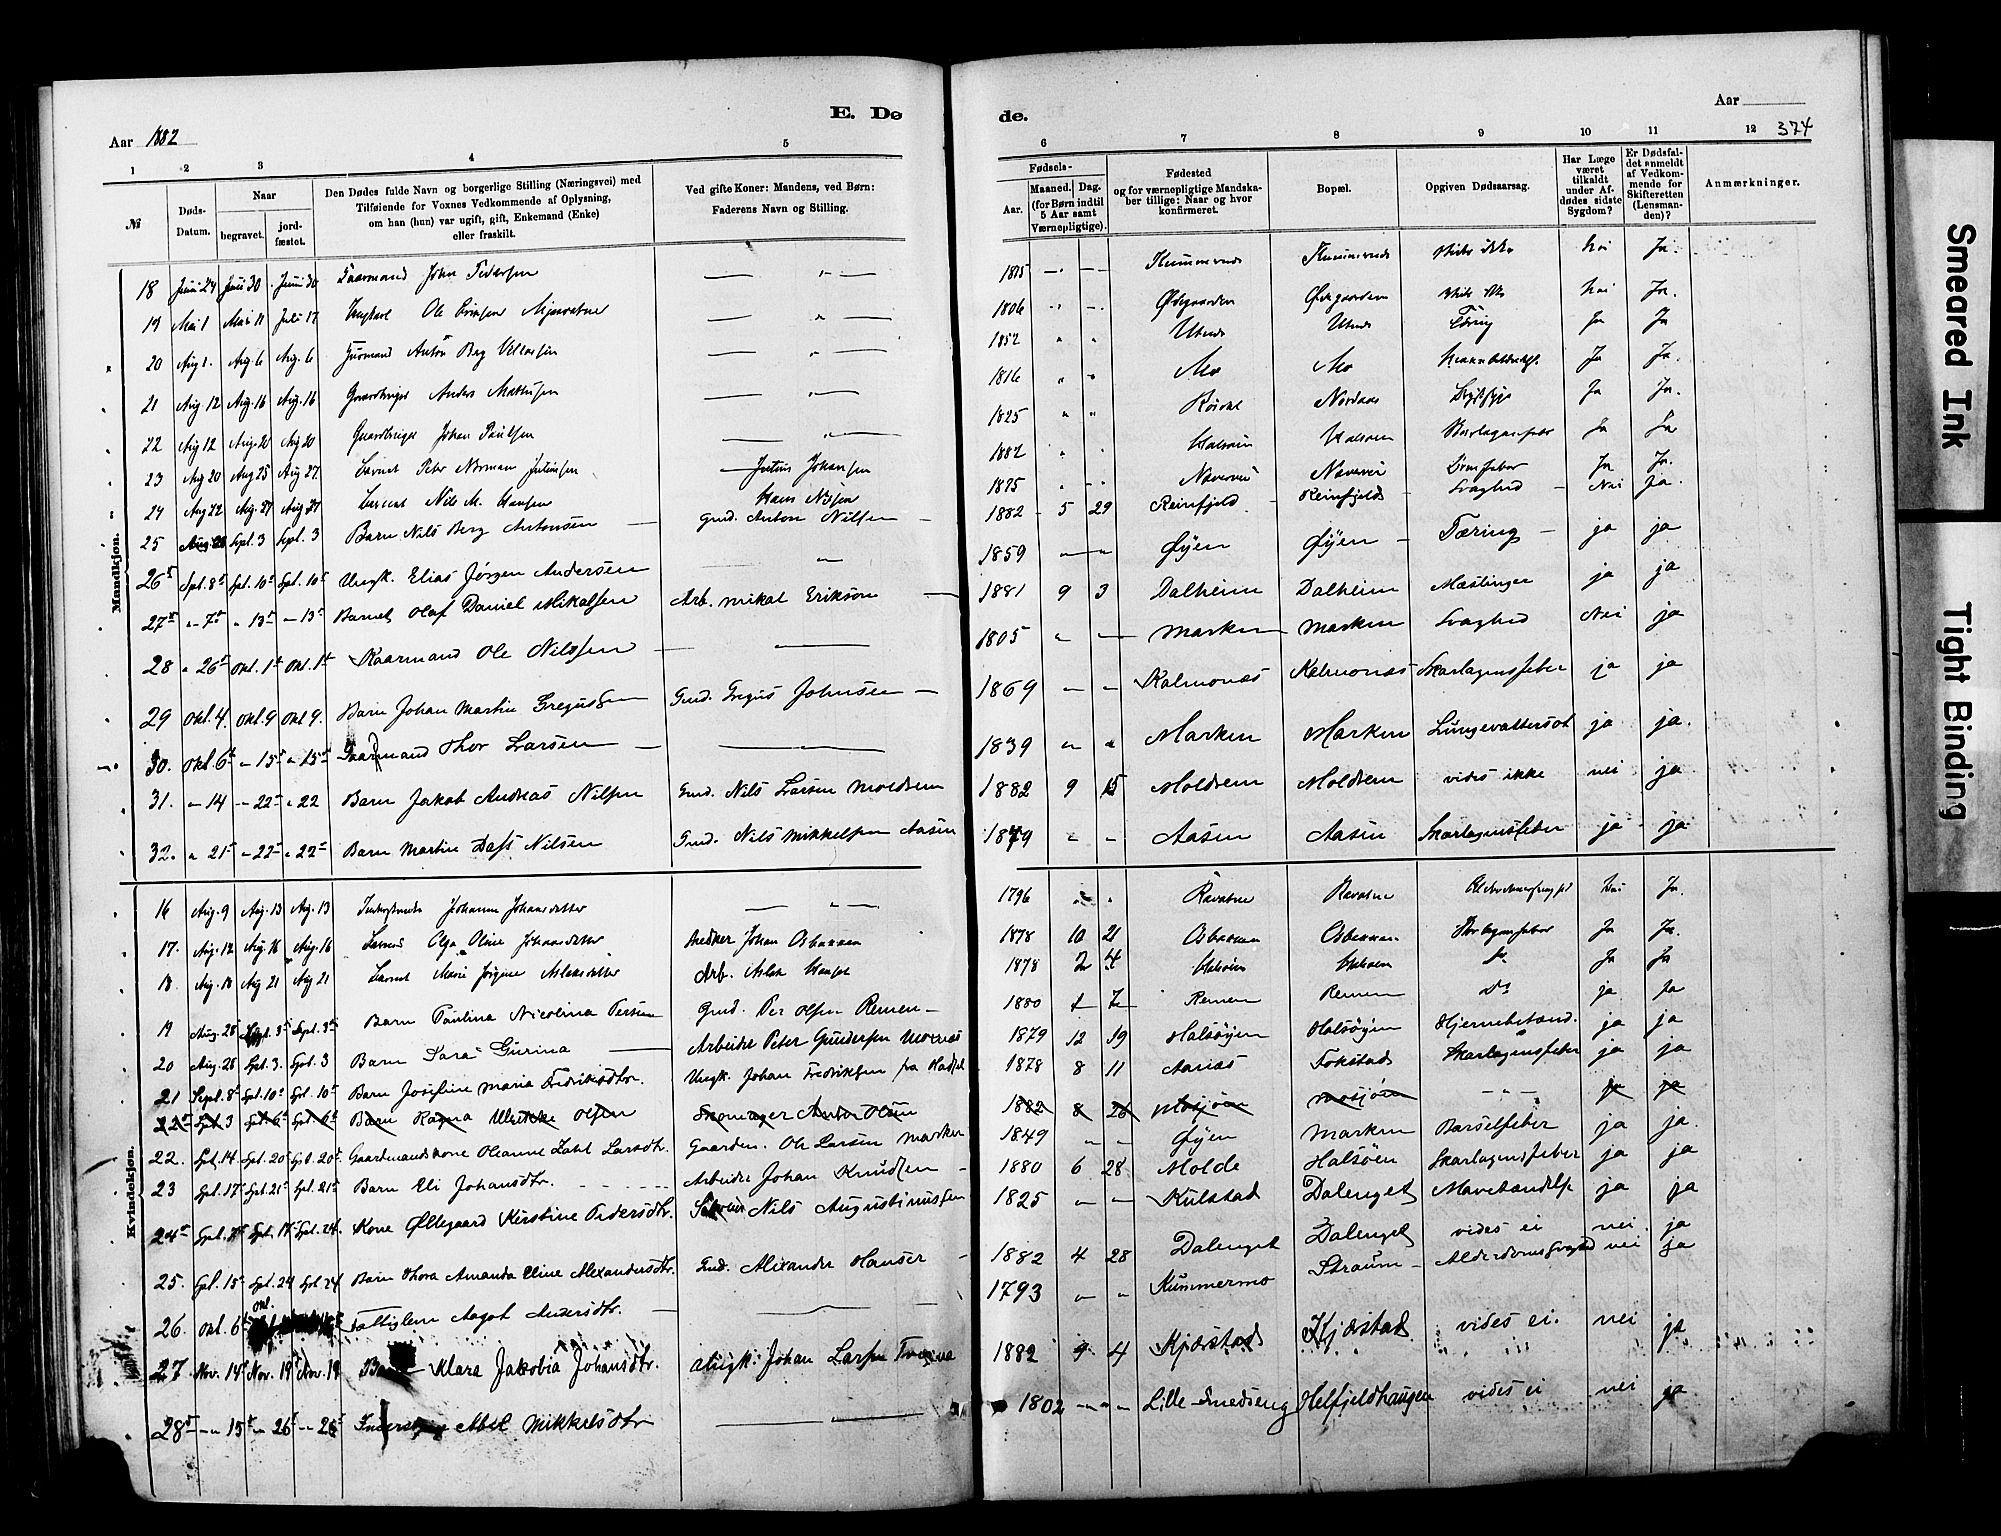 E. Dø
de.
Aar 1882
Aar
374
1 2 3 4 5
6 7 8 9 10 11 12
№
Døds-Datum.
Naar
begravet. jordfæstet.
Den Dødes fulde Navn og borgerlige Stilling (Næringsvei) med
Tilføiende for Voxnes Vedkommende af Oplysning,
om han (hun) var ugift, gift, Enkemand (Enke)
eller fraskilt.
Ved gifte Koner: Mandens, ved Børn:
Faderens Navn og Stilling.
Fødsels-
Aar.
Maaned. Dag.
(for Børn indtil
5 Aar samt
Værnepligtige).
Fødested
og for værnepligtige Mandska-
ber tillige: Naar og hvor
konfirmeret.
Bopæl.
Opgiven Dødsaarsag.
Har Læge
været
tilkaldt
under Af-
dødes sidste
Sygdom?
Er Dødsfal-
det anmeldt
af Vedkom-
mende for
Skifteretten
(Lensman-
den)?
Anmærkninger.
Mandkjøn.
18 Juni 24 Juni 30 Juni 30 John Pedersen 1815 Nei Ja.
19 Mai 1 Mai 11 Juli 17 Ungkarl Ole 1806 Ødegaarden Ødegaarden Nei Ja.
20 Aug 1. Aug. 6 Aug. 6 Anton Berg 1852 Tæring Ja Ja
21 Aug 12 Aug. 16 Aug. 16 Anders 1816 Mo Mo Ja Ja.
22 Aug 12 Aug. 20 Aug 20 Johan Paulsen 1825 Ja Ja.
23 Aug 20 Aug 25 Aug 27 Barnet Peter Norman Justinsen Justins Johansen 1882 Halsøen Halsøen Ja Ja
24 Aug 22 Aug. 27 Aug 27 Barnet Nils M. Hansen Hans Nilsen 1875 Ja Ja.
25 Aug. 28 Sept. 3 Sept. 3 Barn Nils Berg Antonsen Gmd. Anton Nilsen 1882 5 29 Reinfjeld Reinfjeld Svaghed Nei ja.
26 Sept. 8 Sept. 10 Sept. 10 Ungk. Elias Jørgen Andersen 1859 Øyen Øyen Tæring ja ja
27 " 7 " 13 " 13 Barnet Olaf Daniel Mikalsen Arb. Mikal Erikson 1881 9 3 Dalheim Dalheim Mæslinger ja ja
28 " 26 Okt. 1 Okt. 1 Kaarmand Ole Nilssen 1805 Marken Marken Svaghed Nei ja
29 Okt. 4. Okt. 9 Okt 9. Barn Johan Martin Gregussen Gmd. Gregus Johnsen 1869 Kalmonæs Kalmonæs Skarlagensfeber ja ja
30. Okt. 6 " 15 " 15 Gaarmand Thor Larsen 1839 Marken Marken Lungevattersot ja ja.
31. " 14 " 22 " 22 Barn Jakob Andreas Nilsen Gmd. Nils Larsen Moldrem 1882 9 15 Moldrem Moldrem vides ikke nei ja
32. " 21 " 22 " 22 Barn Martin Daft Nilsen Gmd. Nils Mikkelsen Aasen 1879 Aasen Aasen Skarlagensfeber ja ja
Kvindekjøn.
16 Aug. 9 Aug. 13 Aug. 13 Johanna Johansdatter 1796 Ravatne Ravatne Nei Ja.
17. Aug. 12 Aug 16 Aug. 16 Barnet Olga Oline Johansdatter Snedker Johan Osbakken 1878 10 21 Osbakken Osbakken Skarlagensfeber Ja Ja.
18 Aug. 18 Aug 21 Aug 21 Barnet Marie Jørgine Aslaksdatter Arb. Aslak Hansen 1878 2 4 Halsøen Halsøen Do Ja Ja
19 Aug. 28 Sept. 3 Sept. 3 Barn Paulina Nicolina Persen Gmd. Per Olsen Remen 1880 1 7 Remen Remen Do ja ja
20 Aug. 28 Sept. 3. Sept. 3 Barn Sara Gurina Arbeider Peter Gundersen 1879 12 19 Halsøyen Halsøyen Hjernebetænd. ja ja
21 Sept. 8 Sept. 10 Sept. 10 Barn Josefine Maria Fredriksdtr. Ungk. Johan Fredriksen fra 1878 8 11 Aanæs Fokstad Skarlagensfeber ja ja
22 Sept 3 Sept. 6 Sept. 6 Barn Ragna Ulrikke Olsen Skomager Anton Olsen 1882 8 26 Mosjøen Mosjøen ja ja
22. Sept. 14 Sept. 20 Sept. 20 Gaardmandskone Oleanne Zahl Larsdtr. Gaardm. Ole Larsen Marken 1849 Øyen Marken Barselfeber ja ja.
23 Sept. 17 Sept. 21 Sept. 21 Barn Eli Johansdtr. Arbeider Johan Knudsen 1880 6 28 Molde Halsøen Skarlagensfeber ja ja
24 Sept. 17 Sept. 24 Kone Øllegaard Kerstine Pedersdtr. Nils Augustinussen 1825 Kulstad Dalenget ja ja
25. Sept. 15 Sept. 24 Sept 24 Barn Thora Amanda Eline Alexandersdtr. Gmd. Alexander Hansen 1882 4 28 Dalenget Dalenget vides ei nei. ja
26. Okt. 6 Okt. Aagot Andersdtr. 1793 Kummermo Straum Alderdomssvaghed nei ja
27 Nov. 14 Nov. 19 Nov. 19 Klara Jakobia Johansdtr. Ungk. Johan Larsen 1882 9 4 Kjærstad Kjærstad vides ei. nei ja
28 " 15 " 26 " 26 Abel Mikkelsdtr 1802 Lille-Smedseng Helfjeldhaugen vides ei nei ja
Smeared Ink
Tight Binding